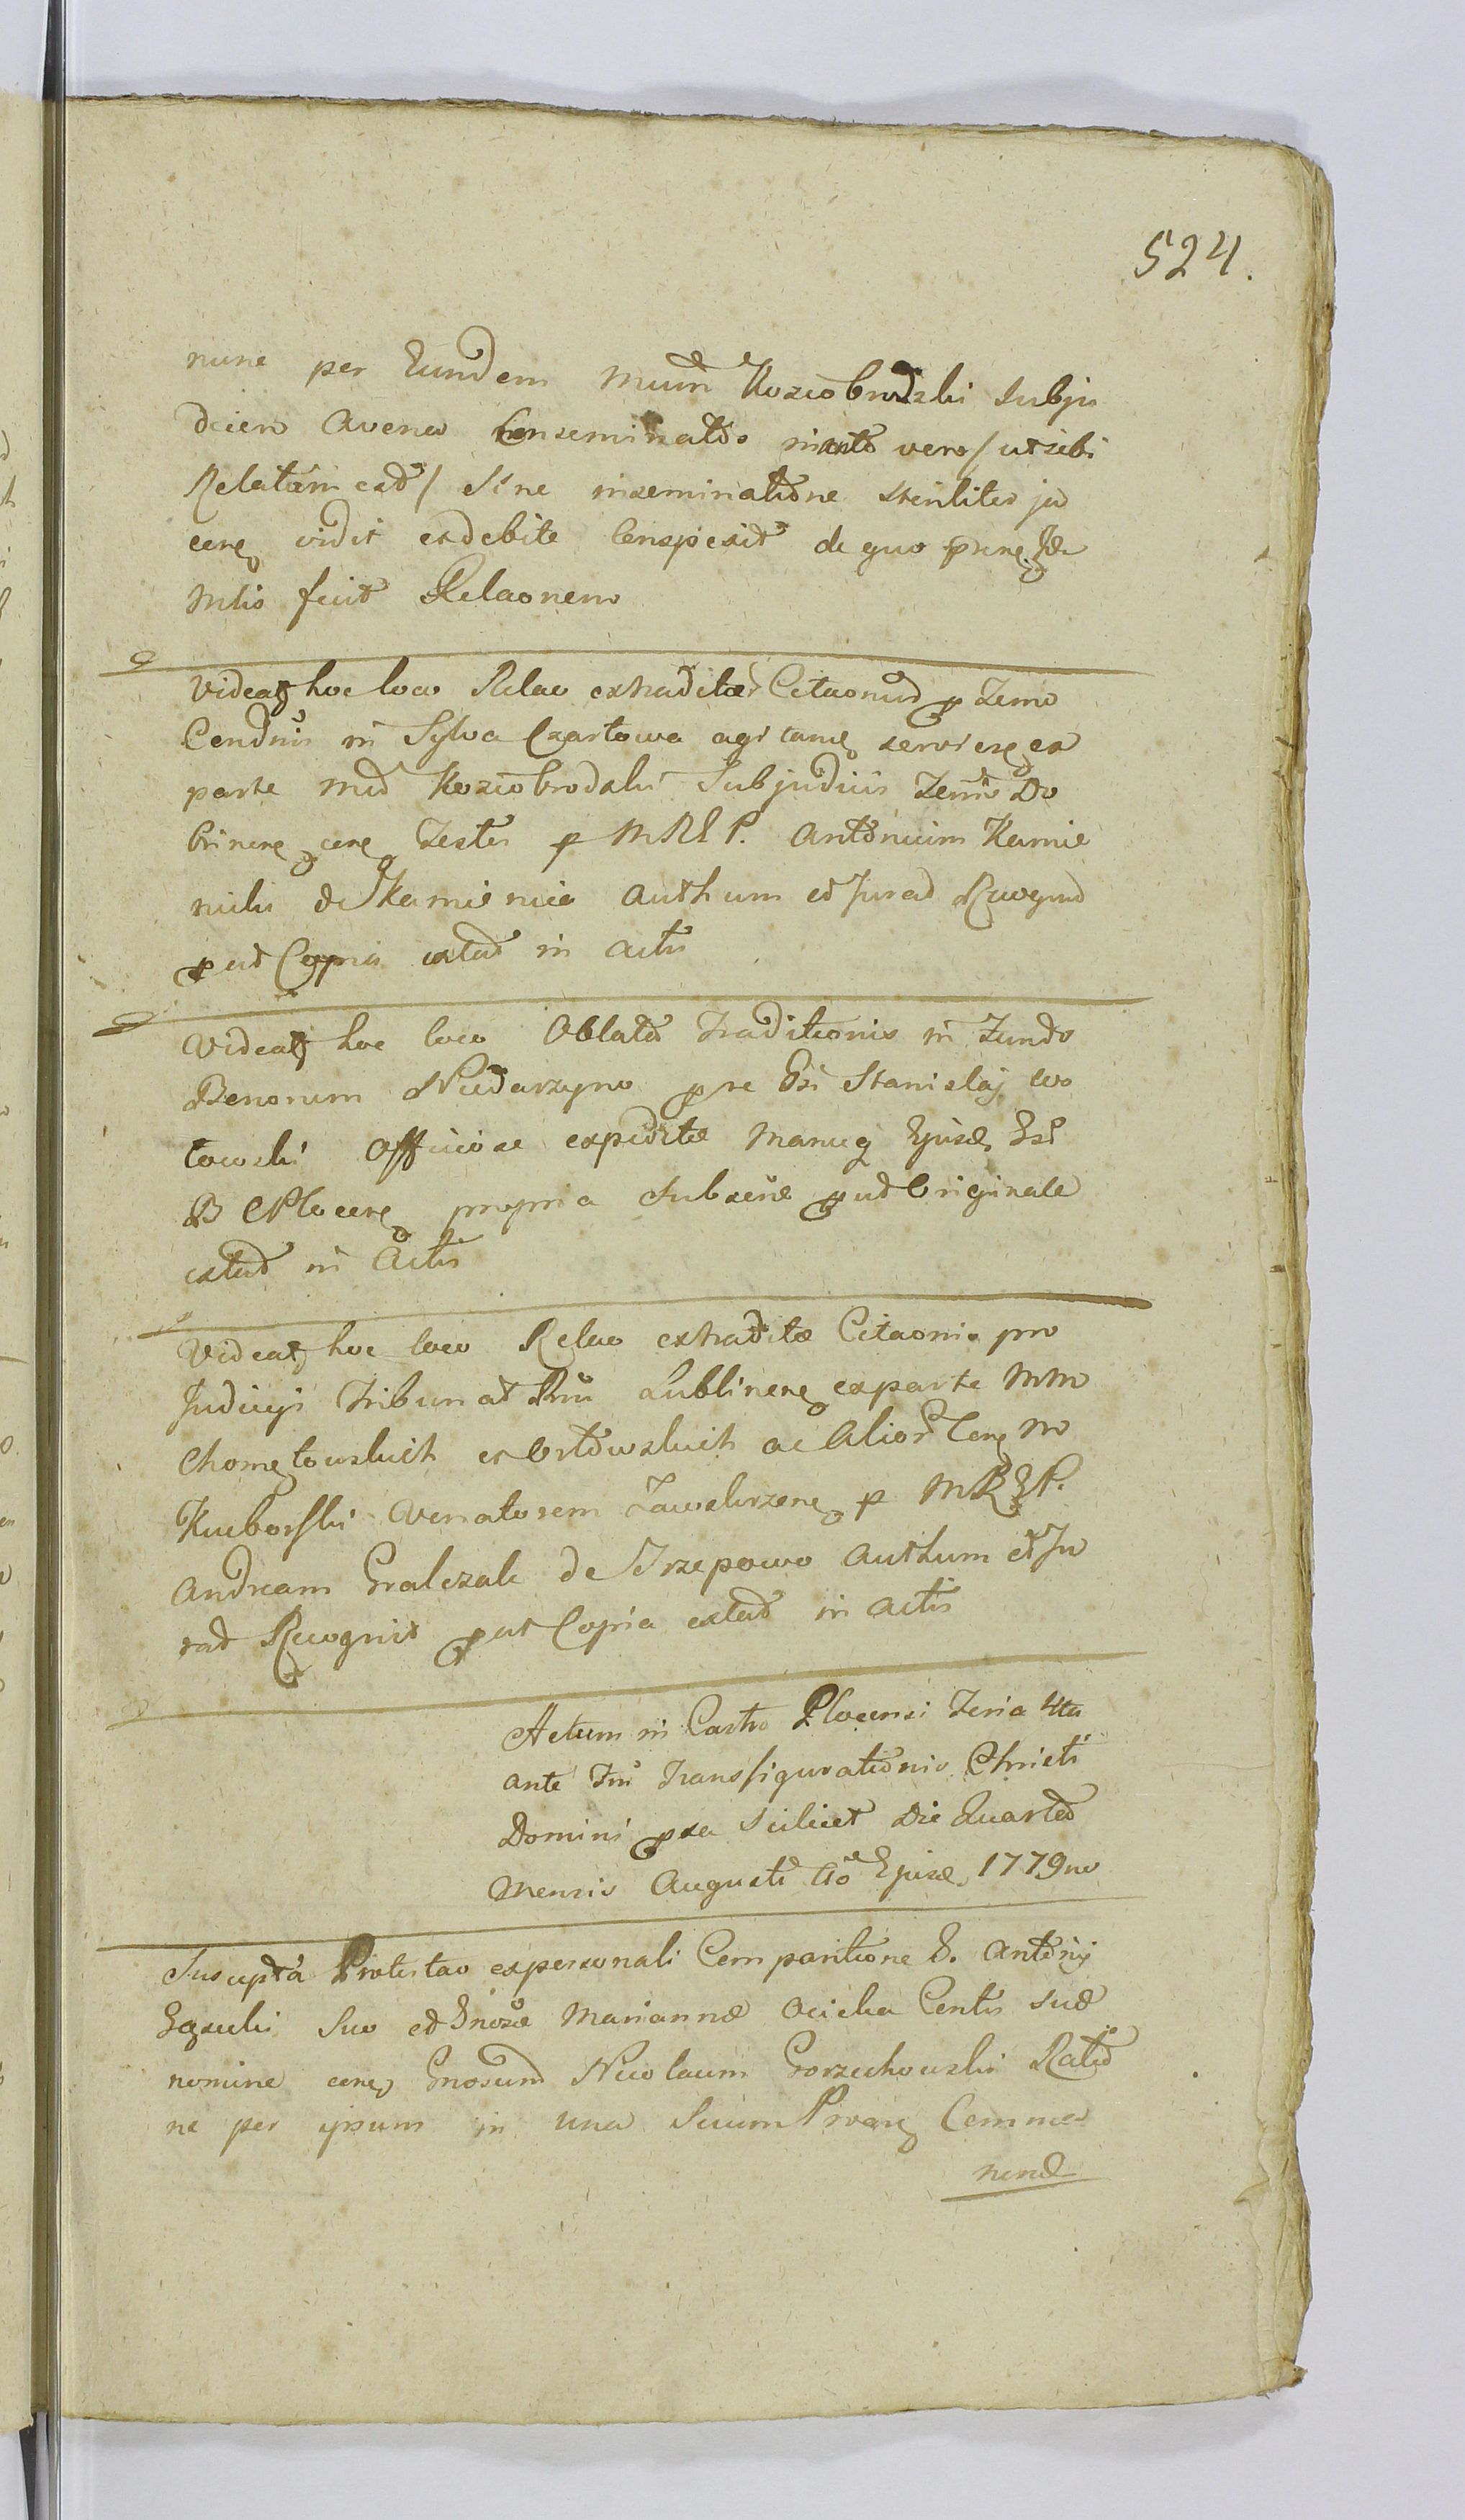 524.
nunc per Eundem Mum Koziobrodzki Subju
dicem Avena Conseminato in anto vero / ut sibi
Relatum est / Sine inseminatione steriliter ja
cere vidit et debite Conspexit de quo prnre Idm
Mlis fecit Relaonem
Videatz hoc loco Relao extraditar Citaonum p Temo
Cendnis in Sylva Czartowa agitane servien ex
parte Md Koziobrodzki Subjudicis Zem Do
brinen cene Testes p MREP. Antonium Kamie
nicki de Kamienica Authum et Jurat Recognit
put Copia extat in Actis
Videatz hoc loco Oblata Traditionis in Fundo
Bonorum Niedarzyno pre Gsi Stanislaj Wo
towski Officiose expedita Manuq Ejusd Gsi
B C Plocen propria Subscr put Originale
extat in Actis
Videatz hoc loco Relao extradita Citaonis pro
Judicijs Tribunat Rni Lublinens ex parte MM
Chometowskich et Ostowskich ac Alior Cone M
Kuborski Venatorem Zawskrzens p MREP.
Andream Gralczak de Trzepowo Authum et Ju
rat Recognit put Copia extat in Actis
Actum in Castro Plocensi Feria 4ta
ante Fm Transfigurationis Christi
Domini pxa Scilicet Die Quarta
Mensis Augusti Ao Ejusd 1779no
Suscepta Protestao ex personali Comparitione G. Antonij
suo et Gnosa Marianna Ocicka Contis sua
nomine cone Gnosum Nicolaum Gorzechowski Ratio
ne per ipsum in una Secum Comme